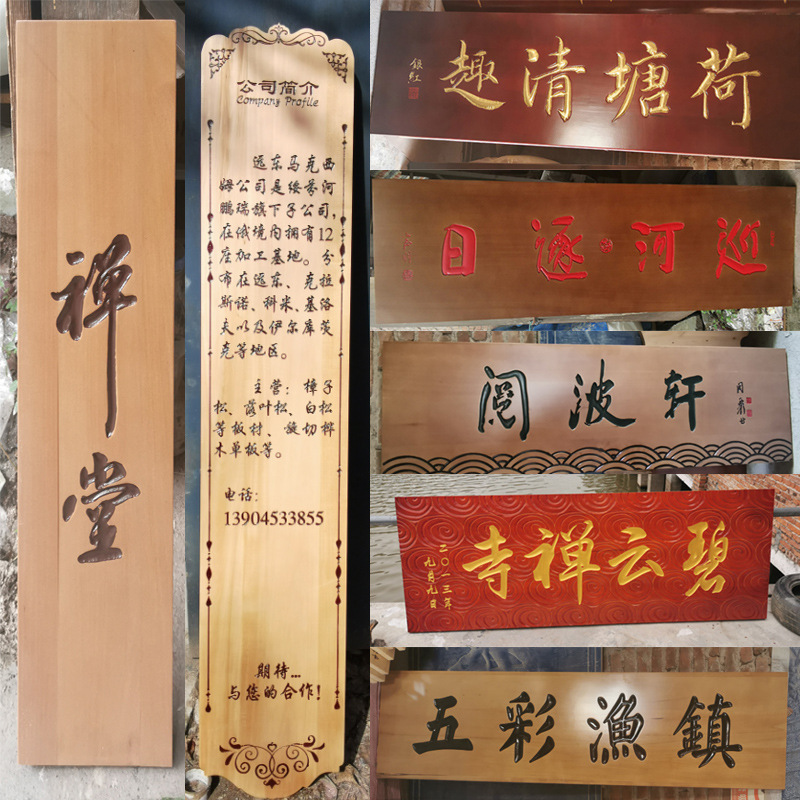 禅堂
公司简介
Company Profile
远东马克西
姆公司是绥芬河
鹏瑞旗下子公司,
在俄境内拥有12
座加工基地。分
布在远东、克拉
斯诺、科米、基洛
夫以及伊尔库茨
克等地区。
主营:樟子
松、落叶松、白松
等板材、旋切桦
木单板等。
电话:
13904533855
期待...
与您的合作!
荷塘清趣
银红
巡河逐日
阅波轩
碧云禅寺
二〇一三年
九月九日
五彩漁鎮